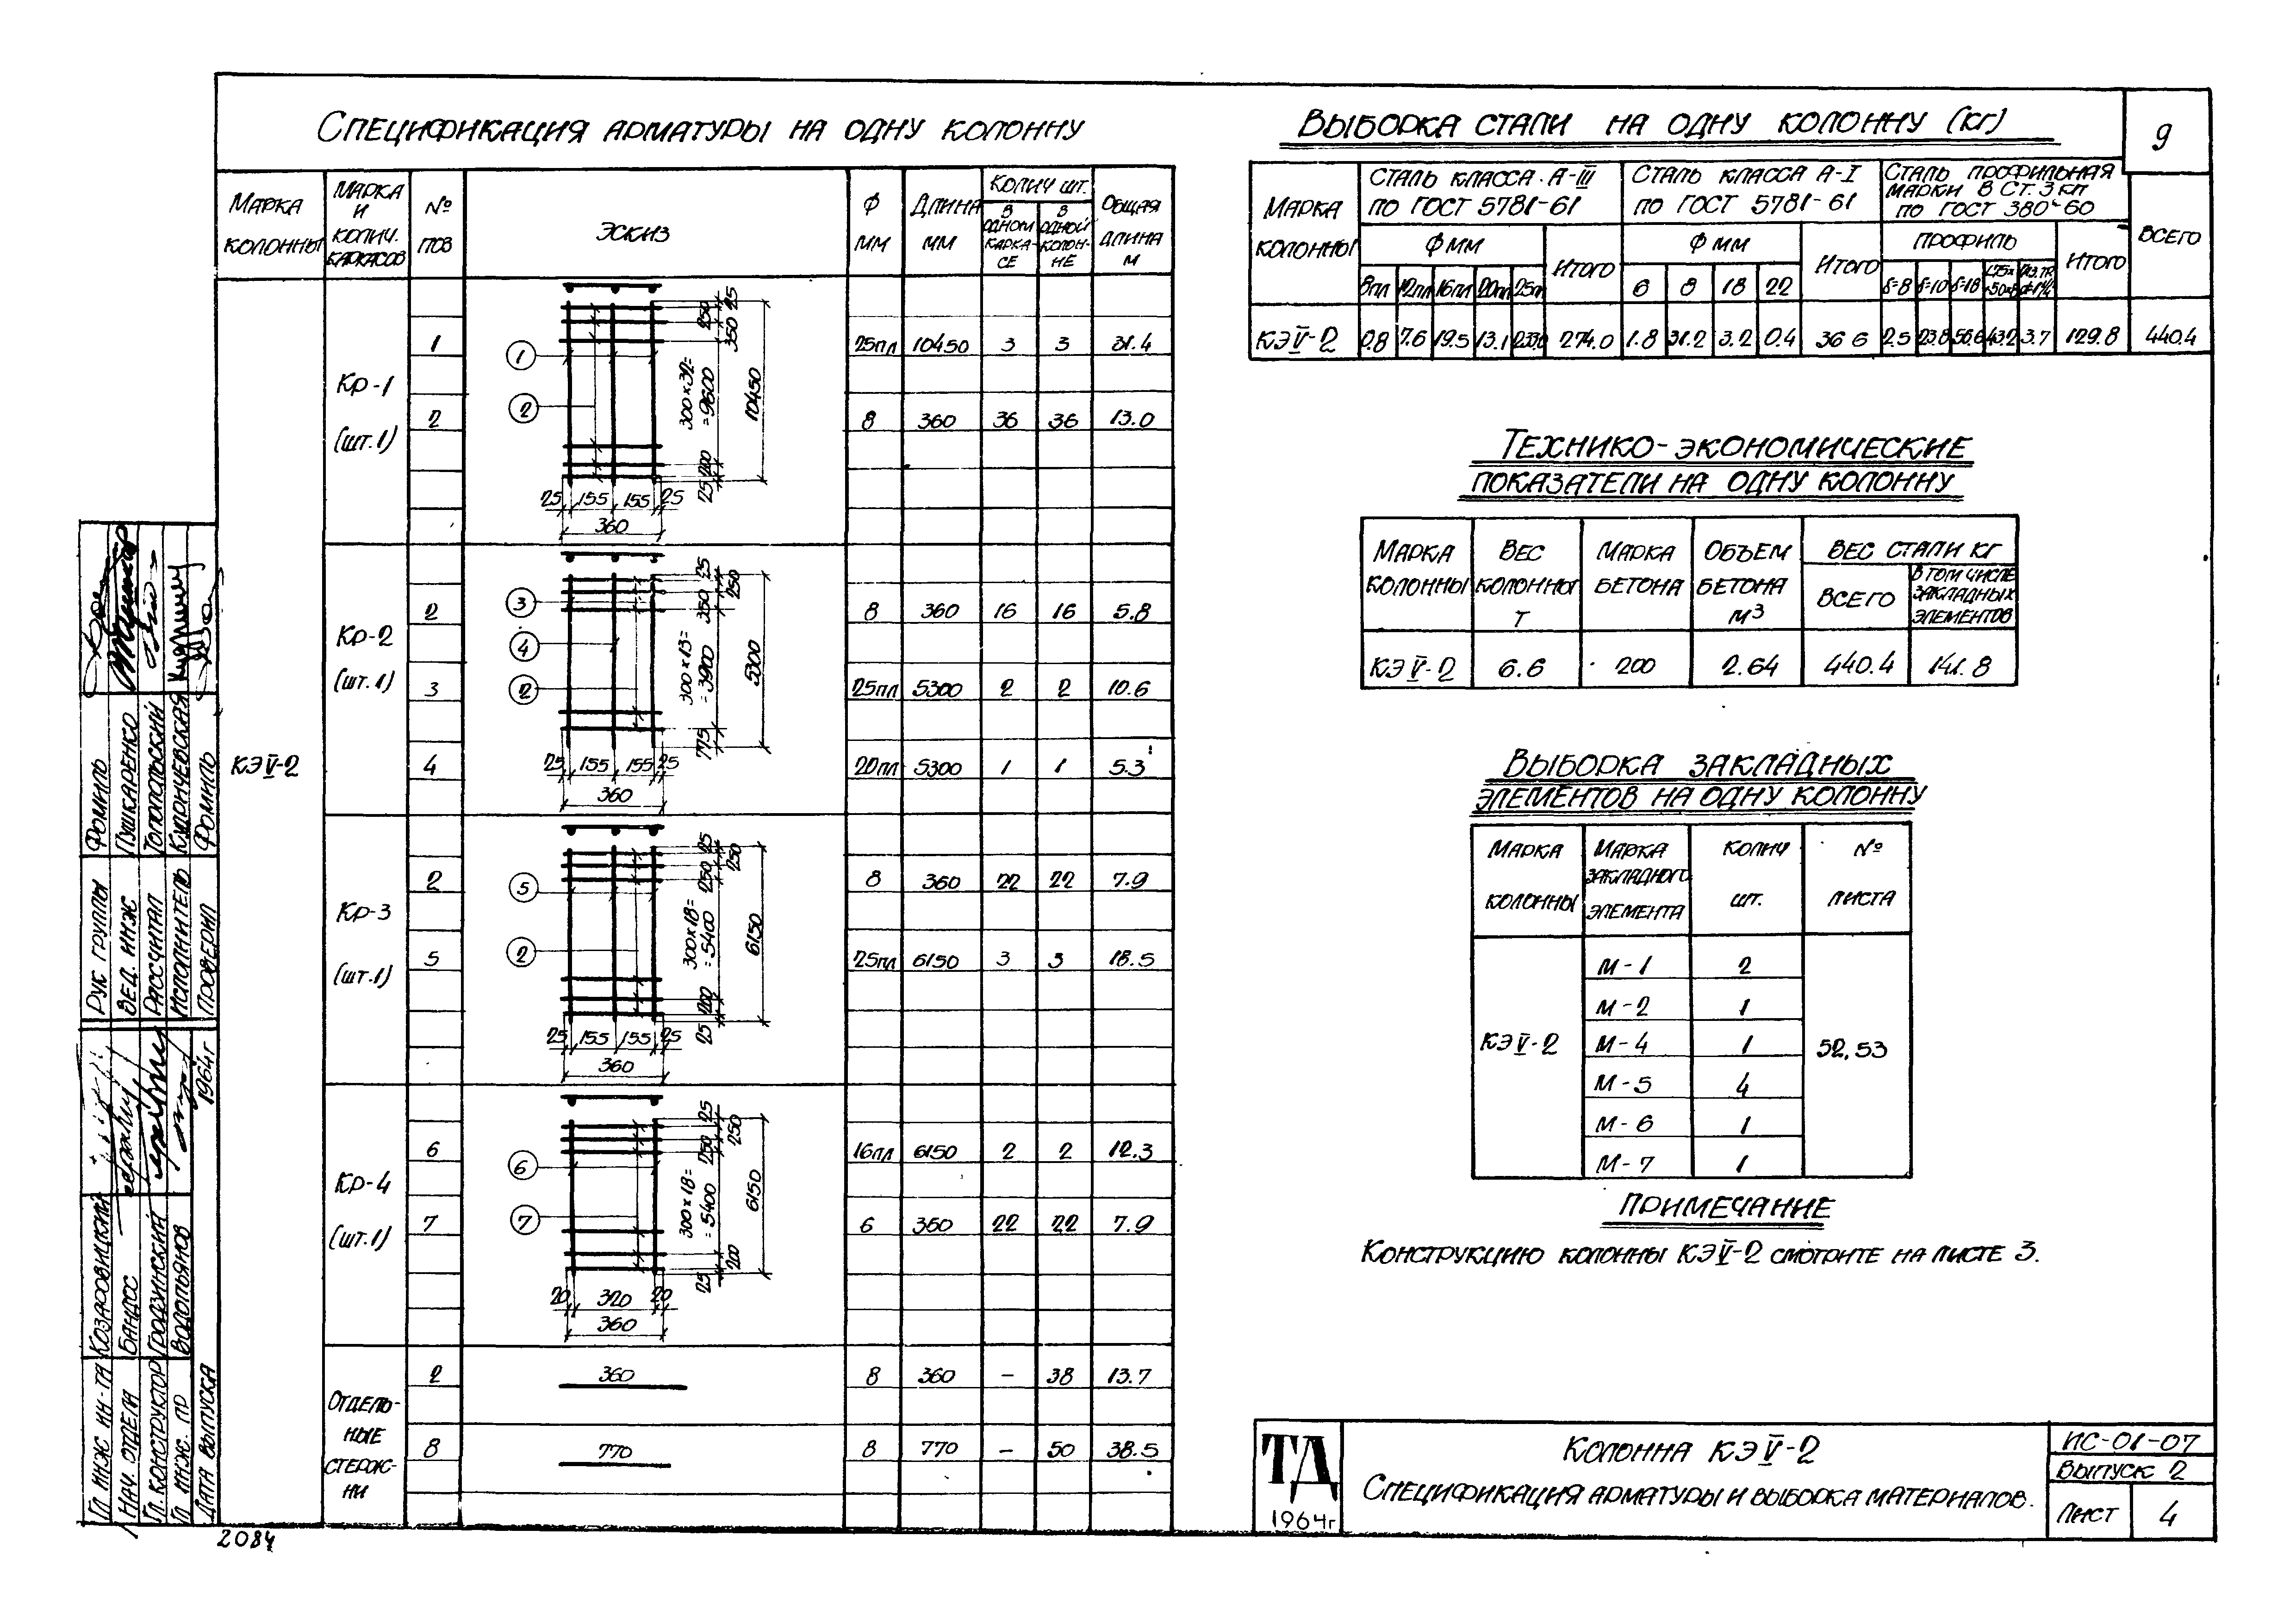 9
Спецификация арматуры на одну колонну
Марка колонны
Марка и колич. каркасов
№ поз
Эскиз
Ф мм
Длина мм
Колич шт.
в одном каркасе
в одной колонне
Общая длина м
КЭV-2
Кр-1 (шт.1)
1 25пл 10450 3 3 31.4
2 8 360 36 36 13.0
1
2
25
250
350
300×32=
=9600
200
25
10450
25 155 155 25
360
Кр-2 (шт.1)
2 8 360 16 16 5.8
3 25пл 5300 2 2 10.6
4 20пл 5300 1 1 5.3
3
4
2
25
250
350
300×13=
=3900
775
5300
25 155 155 25
360
Кр-3 (шт.1)
2 8 360 22 22 7.9
5 25пл 6150 3 3 18.5
5
2
25
250
250
300×18=
=5400
200
25
6150
25 155 155 25
360
Кр-4 (шт.1)
6 16пл 6150 2 2 12.3
7 6 360 22 22 7.9
6
7
25
250
250
300×18=
=5400
200
25
6150
20 320 20
360
Отдель-
ные
стерж-
ни
2 360 8 360 – 38 13.7
8 770 8 770 – 50 38.5
Выборка стали на одну колонну (кг)
Марка колонны
Сталь класса А-III
по ГОСТ 5781-61
Ф мм
8пл 12пл 16пл 20пл 25пл
Итого
Сталь класса А-I
по ГОСТ 5781-61
Ф мм
6 8 18 22
Итого
Сталь профильная
марки В Ст.3 кп
по ГОСТ 380-60
Профиль
δ=8 δ=10 δ=18
Итого
Всего
КЭV-2 0.8 7.6 19.5 13.1 233.0 274.0 1.8 31.2 3.2 0.4 36 6 2.5 23.8 56.6 43.2 3.7 129.8 440.4
Технико-экономические
показатели на одну колонну
Марка колонны
Вес колонны т
Марка бетона
Объем бетона м3
Вес стали кг
Всего
В том числе закладных элементов
КЭV-2 6.6 200 2.64 440.4 141.8
Выборка закладных
элементов на одну колонну
Марка колонны
Марка закладного элемента
Колич шт.
№ листа
КЭV-2
М-1 2
М-2 1
М-4 1
М-5 4
М-6 1
М-7 1
52,53
Примечание
Конструкцию колонны КЭV-2 смотрите на листе 3.
ТД
1964г
Колонна КЭV-2
Спецификация арматуры и выборка материалов.
ИС-01-07
Выпуск 2
Лист 4
Рук группы Фомиль
Вед. инж Пушкаренко
Рассчитал Топопольский
Исполнитель
Проверил Фомиль
Гл инж ин-та Козаровицкий
Нач. отдела Бандос
Гл. конструктор Гродзинский
Гл инж. пр Водопьянов
Дата выпуска 1964г
2084